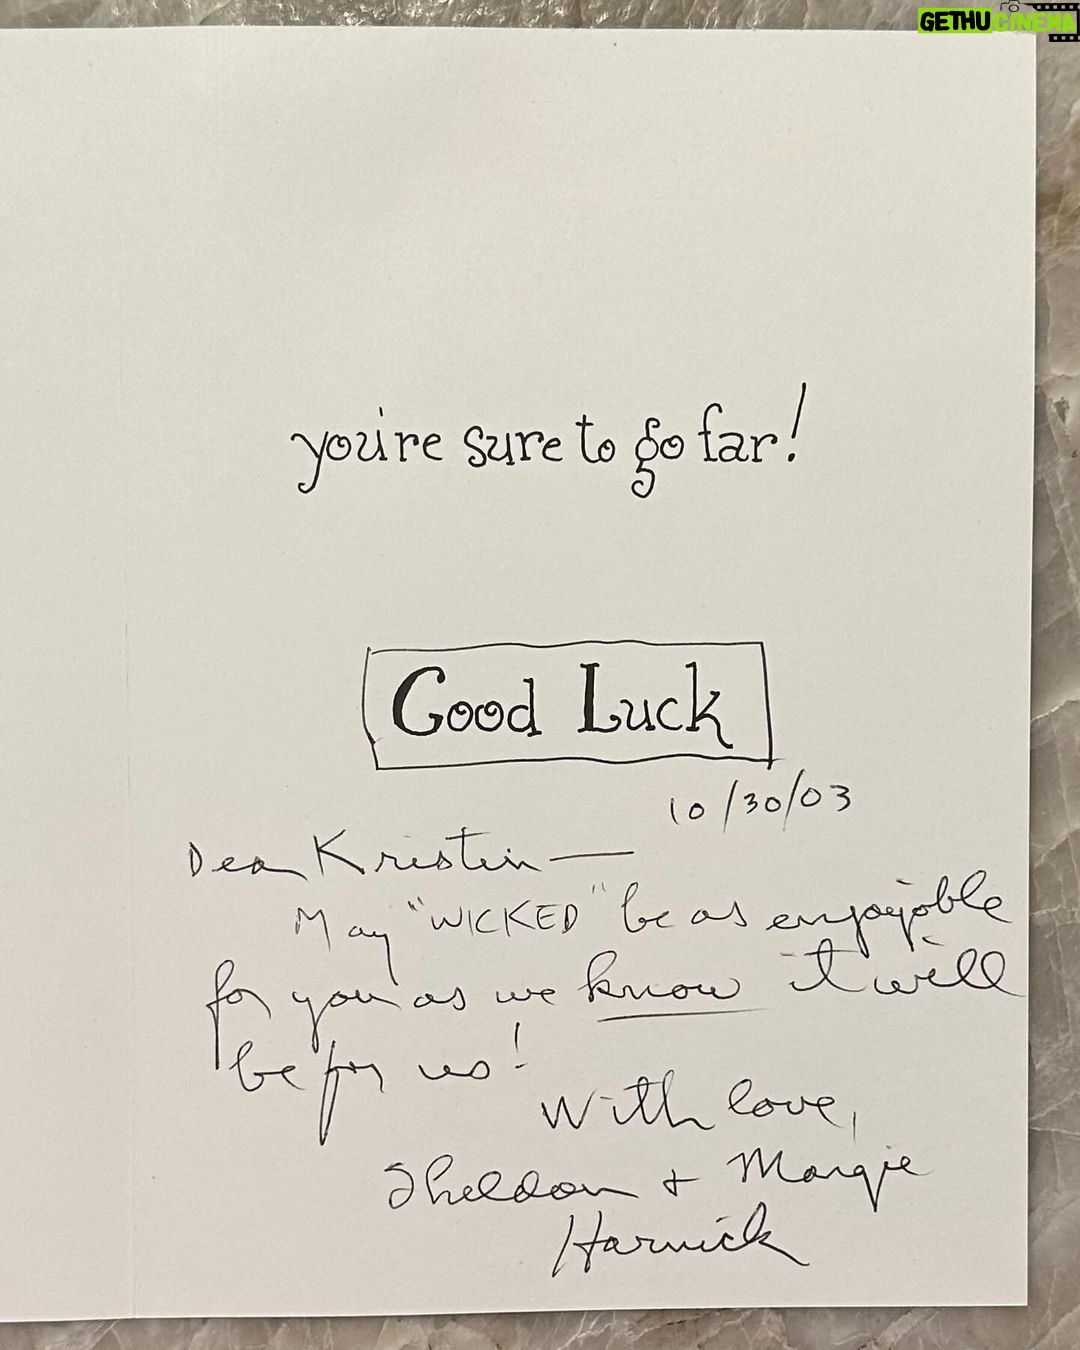 GETHUCINEMA
you're sure to go far!
Good Luck
10/30/03
Dear Kristin —
May "WICKED" be as enjoyable
for you as we know it will
be for us!
With love,
Sheldon + Margie
Harnick